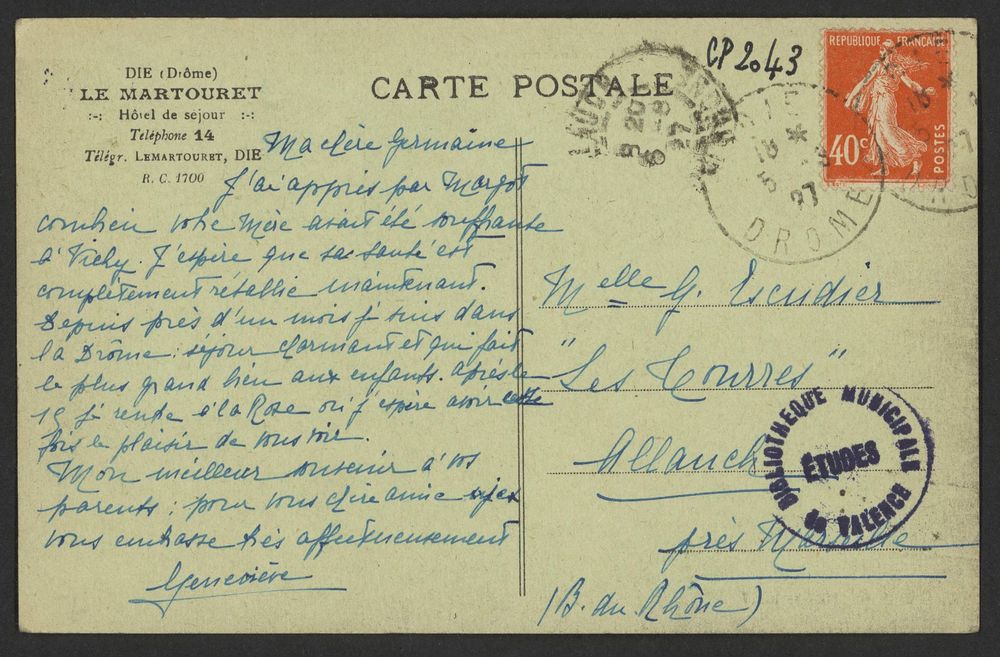 DIE (Drôme)
LE MARTOURET
:-: Hôtel de séjour :-:
Téléphone 14
Télégr. LEMARTOURET, DIE
R. C. 1700
CARTE POSTALE
CP 2043
REPUBLIQUE FRANÇAISE
40c
POSTES
DIE
18 *
5 -8
27
DROME
Ma chère Germaine
J'ai appris par Margot
combien votre Mère avait été souffrante
à Vichy. J'espère que sa santé est
complètement rétablie maintenant.
Depuis près d'un mois je suis dans
la Drôme : séjour charmant et qui fait
le plus grand bien aux enfants. Après le
15 je rentre à la Rose où j'espère avoir cette
fois le plaisir de vous voir.
Mon meilleur souvenir à vos
parents ; pour vous chère amie
vous embrasse très affectueusement
Geneviève
Melle G. Escudier
"Les Tourres"
Allauch
près Marseille
(B. du Rhône)
BIBLIOTHEQUE MUNICIPALE
ÉTUDES
de VALENCE